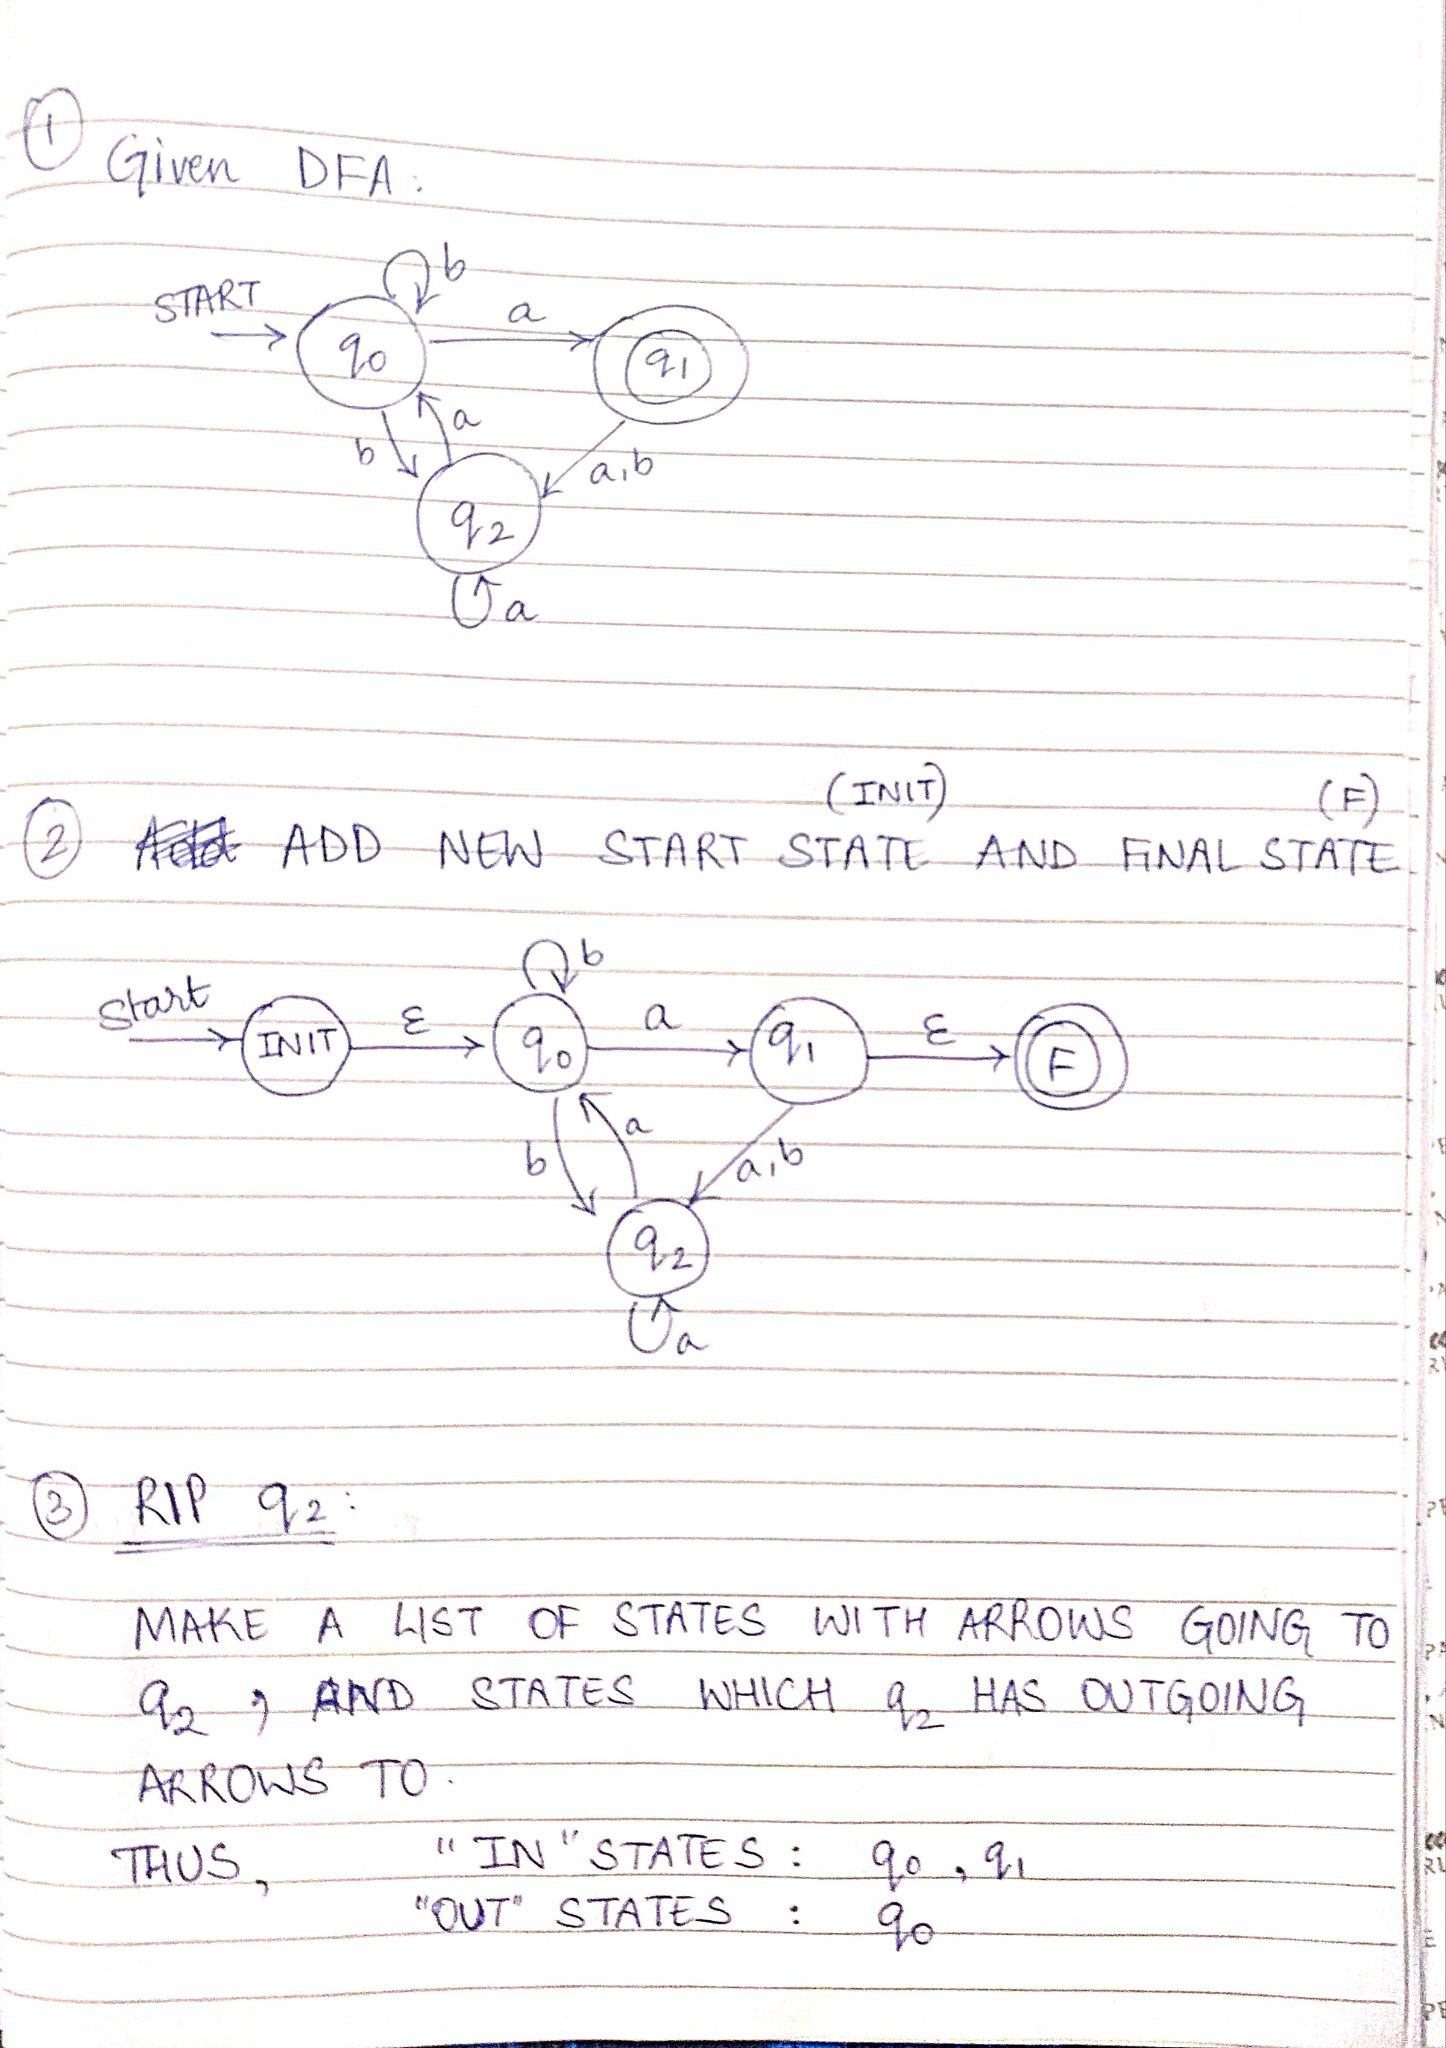 1
Given DFA:
b
START
a
q0
q1
a
b
a,b
q2
a
(INIT) (F)
2 ADD NEW START STATE AND FINAL STATE
b
Start
INIT ε q0 a q1 ε F
a
b a,b
q2
a
3 RIP q2:
MAKE A LIST OF STATES WITH ARROWS GOING TO
q2, AND STATES WHICH q2 HAS OUTGOING
ARROWS TO.
THUS, "IN" STATES : q0, q1
"OUT" STATES : q0